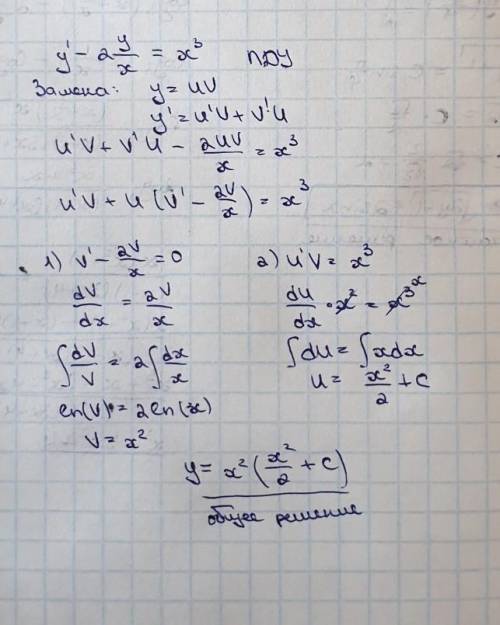 y' - 2 y/x = x³ ЛДУ
Замена: y = UV
y' = U'V + V'U
U'V + V'U - 2UV/x = x³
U'V + U (V' - 2V/x) = x³
1) V' - 2V/x = 0
dV/dx = 2V/x
∫ dV/V = 2 ∫ dx/x
ln(V) = 2 ln(x)
V = x²
2) U'V = x³
dU/dx · x² = x³ x
∫ dU = ∫ x dx
U = x²/2 + C
y = x² (x²/2 + C)
общее решение